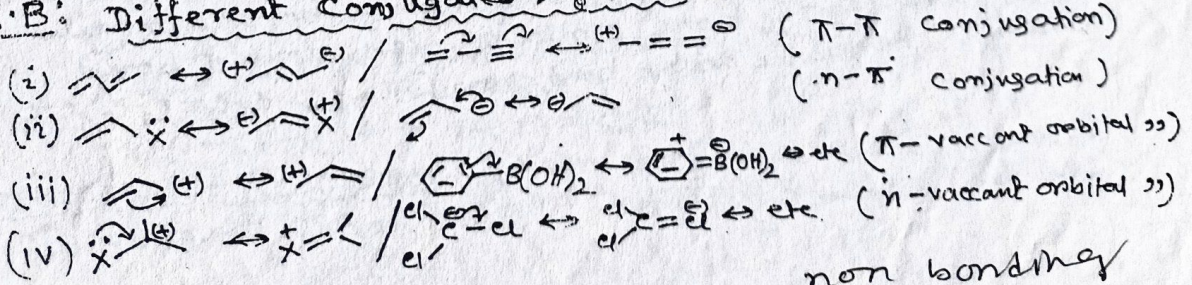 B: Different Conjuga
(i) ↔ (+) (-) / = - ≡ ↔ (+) - = = ⊖ (π-π conjugation)
(ii) Ẍ ↔ (-) =X (+) / ⊖ ↔ ⊖ (n-π conjugation)
(iii) (+) ↔ (+) / B(OH)₂ ↔ + =B⊖(OH)₂ ↔ etc (π-vaccant orbital ")
(iv) Ẍ (+) ↔ X+ = / Cl Cl C-Cl ↔ Cl Cl C=Cl (-) ↔ etc. (n-vaccant orbital ")
non bonding